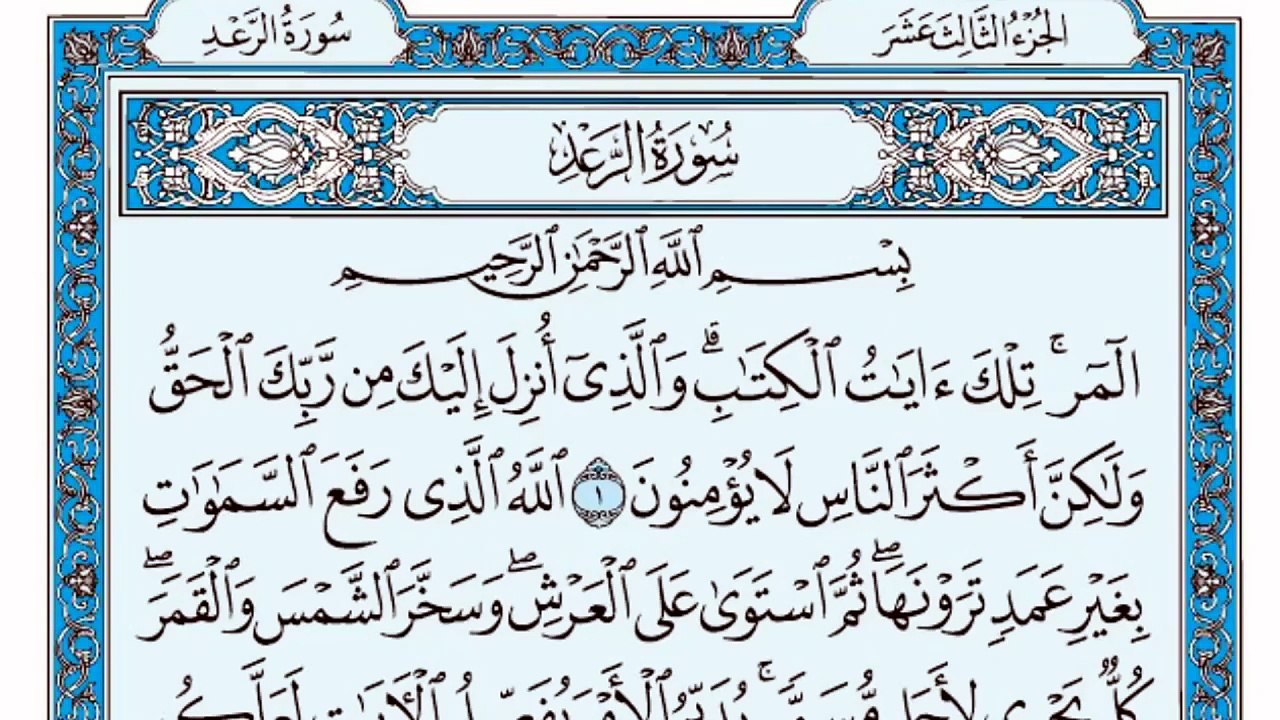 الجزء الثالث عشر
سورة الرعد
سُورَةُ الرَّعْدِ
بِسْمِ ٱللَّهِ ٱلرَّحْمَٰنِ ٱلرَّحِيمِ
الٓمٓر ۚ تِلْكَ ءَايَٰتُ ٱلْكِتَٰبِ ۗ وَٱلَّذِىٓ أُنزِلَ إِلَيْكَ مِن رَّبِّكَ ٱلْحَقُّ
وَلَٰكِنَّ أَكْثَرَ ٱلنَّاسِ لَا يُؤْمِنُونَ ١ ٱللَّهُ ٱلَّذِى رَفَعَ ٱلسَّمَٰوَٰتِ
بِغَيْرِ عَمَدٍ تَرَوْنَهَا ۖ ثُمَّ ٱسْتَوَىٰ عَلَى ٱلْعَرْشِ ۖ وَسَخَّرَ ٱلشَّمْسَ وَٱلْقَمَرَ ۖ
كُلٌّ يَجْرِى لِأَجَلٍ مُّسَمًّى ۚ يُدَبِّرُ ٱلْأَمْرَ يُفَصِّلُ ٱلْءَايَٰتِ لَعَلَّكُم